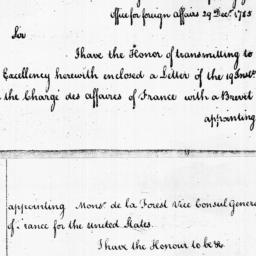 Office for foreign Affairs 29 Decr. 1785
Sir
I have the Honor of transmitting to
Excellency herewith enclosed a Letter of the 19 Inst.
the Chargé des affaires of France with a Brevet
appointing
appointing Monsr. de la Forest Vice Consul General
of rance for the United States.
I have the Honour to be &